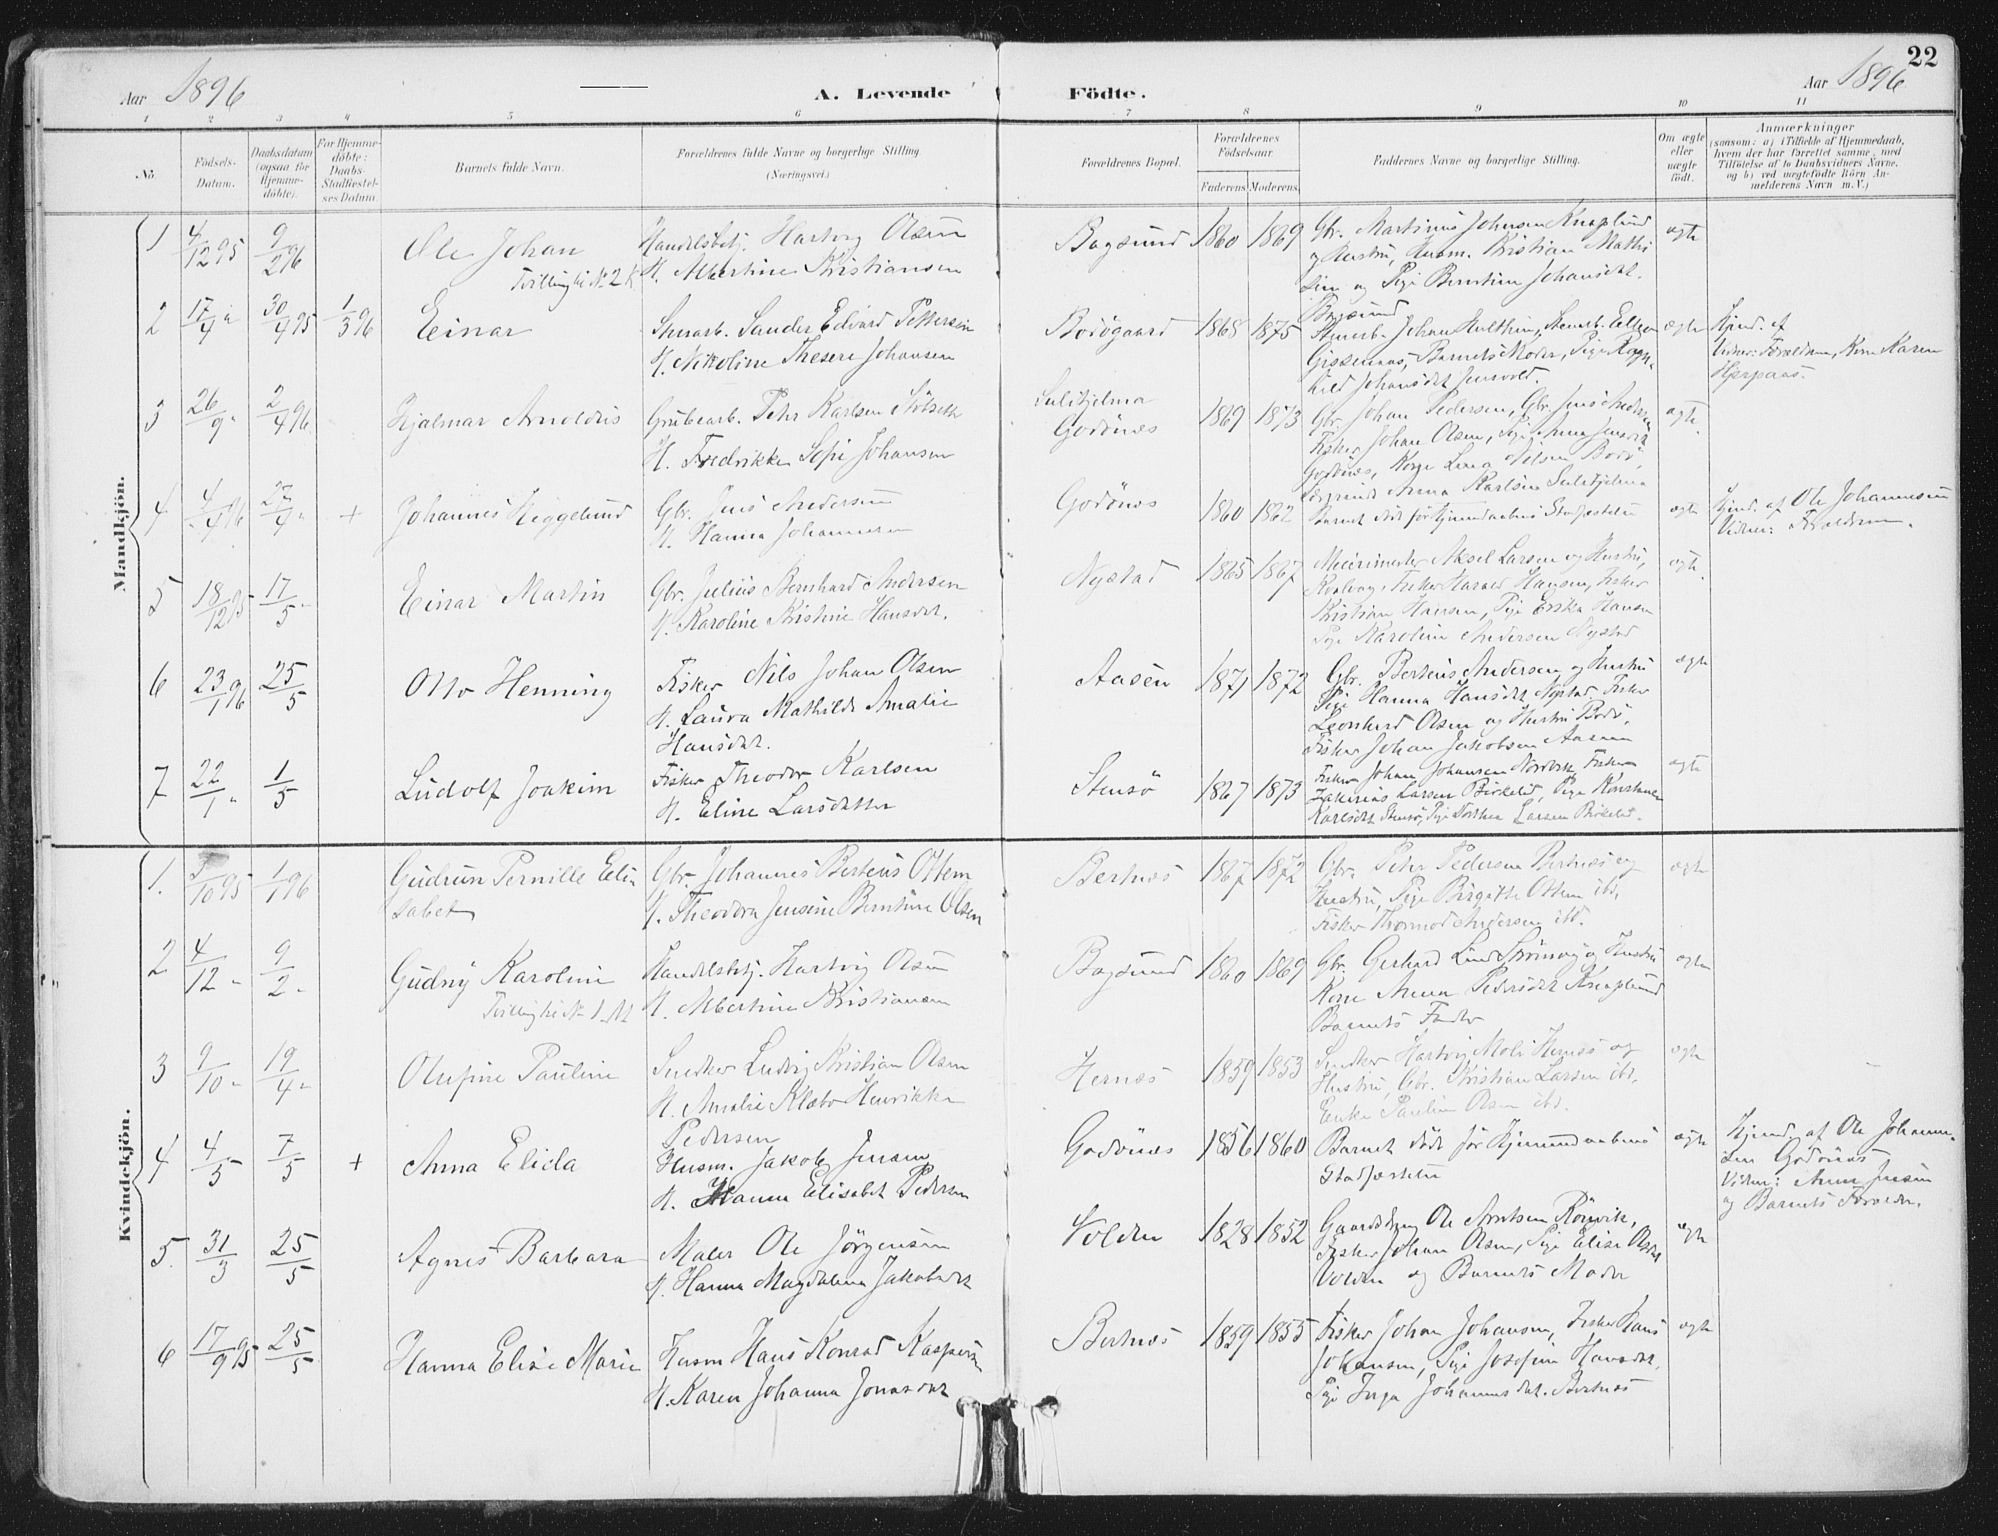 22
Aar 1896
A. Levende Födte.
Aar 1896
1 2 3 4 5 6 7 8 9 10 11
No.
Födsels-Datum.
Daabsdatum (ogsaa for Hjemmedöbte).
For Hjemmedöbte: Daabs-Stadfæstelses Datum
Barnets fulde Navn.
Forældrenes fulde Navne og borgerlige Stilling. (Næringsvei.)
Forældrenes Bopæl.
Forældrenes Födselsaar.
Faderens. Moderens.
Faddernes Navne og borgerlige Stilling.
Om ægte eller uægte födt.
Anmærkninger
(saasom: a) i Tilfælde af Hjemmedaab, hvem der har forrettet samme, med Tilföielse af to Daabsvidners Navne, og b) ved uægtefödte Börn Anmelderens Navn m. V.)
Mandkjön.
1 4/12 95 9/2 96 Ole Johan Handelsbetj. Hartvig Olsen Bogsund 1860 1869 Gbr. Martinus Johnsen Knaplund ægte
Tvilling til No 2 K H. Albertine Kristiansen og Hustru, Husm. Kristian Mathi
sen og Pige Berntine Johansdat.
Bogsund
2 17/4 " 30/4 95 1/3 96 Einar Stenarb. Sander Edvard Pettersen Bodögaard 1868 1875 Stenarb. Johan Hulthin, Stenarb. ægte Hjmd. af
H. Nikoline Therese Johansen Barnets Moder, Pige Ragn- Vidner: Forældrene, Kone Karen
hild Johansdat
3 26/9 " 2/4 96 Hjalmar Arnoldus Grubearb. Pehr Karlsen Sulitjelma 1869 1873 Gbr. Johan Pedersen, Gbr. Jens Andersen ægte
H. Fredrikke Sofi Johansen Godönes Fisker Johan Olsen, Pige Anna Jensdat
Godönes, Kone Lina Nilsen Bodö,
Anna Karlsen Sulitjelma
4 4/4 96 27/4 " + Johannes Heggelund Gbr. Jens Andersen Godönes 1860 1862 Barnet död för Hjemmedaabens Stadfæstelse ægte Hjmd. af Ole Johannesen
H. Hanna Johannesen Vidner: Forældrene.
5 18/12 95 17/5 " Einar Martin Gbr. Julius Bernhard Andersen Nystad 1865 1867 Meierimester Aksel Larsen og Hustru, ægte
H. Karoline Kristine Hansdat. Fisker Harald Hansen, Fisker
Kristian Hansen, Pige Erika Hansen
Pige Karoline Andersen Nystad
6 23/1 96 25/5 Otto Henning Fisker Nils Johan Olsen Aasen 1871 1872 Gbr. Berteus Andersen og Hustru ægte
H. Laura Mathilde Amalie Pige Hanna Hansdat Nystad. Fisker
Hansdat. Leonhard Olsen og Hustru Bodö,
Fisker Johan Jakobsen Aasen
7 22/1 " 1/5 Ludolf Joakim Fisker Theodor Karlsen Stensö 1867 1873 Fisker Johan Johansen Nordvik, Fisker ægte
H. Eline Larsdatter Zakarias Larsen Birkelid, Pige Konstanse
Karlsdat Stensö, Pige Dorthea Larsen Birkelid.
Kvindekjön.
1. 5/10 95 1/1 96 Gudrun Pernille Eli- Gbr. Johannes Berteus Ottem Bertnes 1867 1872 Gbr. Peter Pedersen Bertnes og ægte
sabet H. Theodora Jensine Berntine Olsen Hustru, Pige Birgitte Ottem ibd,
Fisker Thormod Andersen ibd.
2 4/12 " 9/2 " Gudny Karoline Handelsbetj. Hartvig Olsen Bogsund 1860 1869 Gbr. Gerhard Lund Strömsnes og Hustru ægte
Tvilling til No 1 M H. Albertine Kristiansen Kone Anna Pedersdat Knaplund
Barnets Fader
3 9/10 " 19/4 " Olufine Pauline Snedker Ludvig Kristian Olsen Hernes 1859 1853 Snedker Hartvig Moli Hernes og ægte
H. Amalie Klæbo Henrikke Hustru, Gbr. Kristian Larsen ibd,
Pedersen Enke Pauline Olsen ibd.
4 4/5 7/5 + Anna Elida Husm. Jakob Jensen Godönes 1856 1860 Barnet död för Hjemmedaabens ægte Hjmd. af Ole Johanne-
H. Hanna Elisabet Pedersen Stadfæstelse sen Godönes
Vidner: Anna Jensen
og Barnets Forældre.
5. 31/3 25/5 Agnes Barbara Maler Ole Jörgensen Volden 1828 1852 Gaardbrug Ole Arntsen Rönvik, ægte
H. Hanna Magdalena Jakobsdat Fisker Johan Olsen, Pige Elise Olsdat
Volden og Barnets Moder
6 17/9 95 25/5 Hanna Elise Marie Husm Hans Konrad Kaspersen Bertnes 1859 1855 Fisker Johan Johansen, Fisker Hans ægte
H. Karen Johanna Jonasdat Johansen, Pige Josefine Hansdat.
Pige Inga Johannesdat. Bertnes